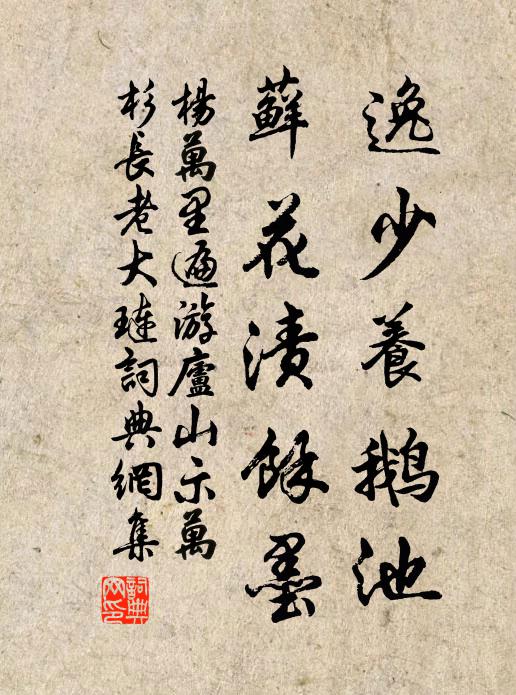 逸少養鵝池
蘚花漬餘墨
楊萬里遍游廬山示萬
杉長老大璉詞典網集
詞典網印